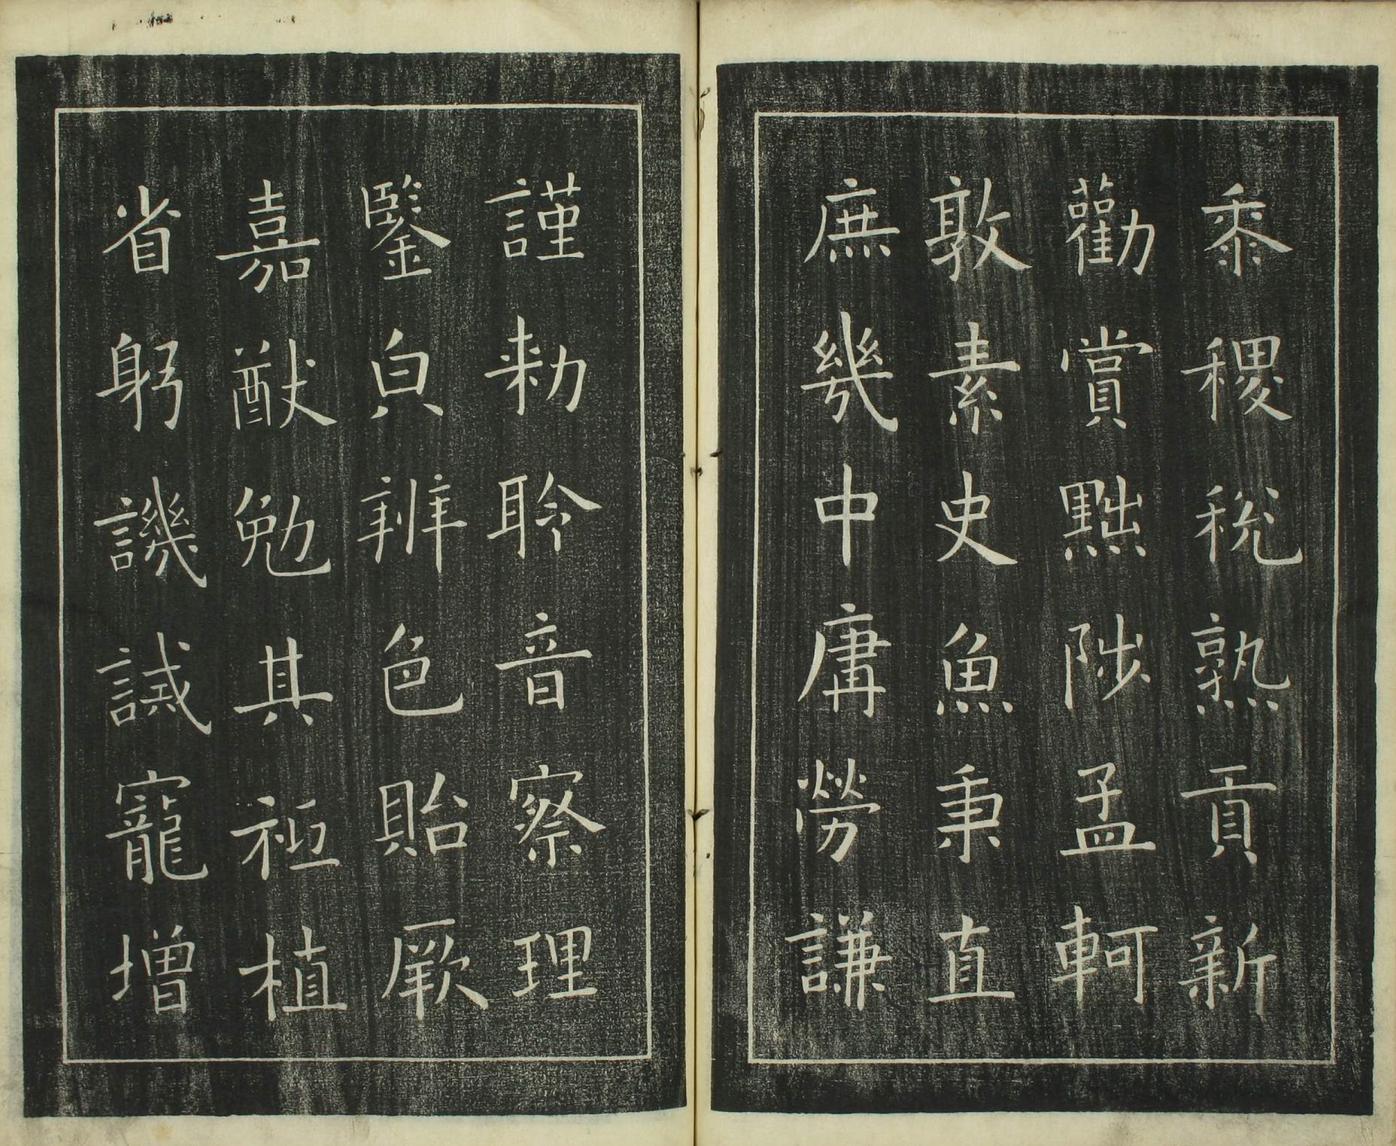 黍稷稅熟貢新
勸賞黜陟孟軻
敦素史魚秉直
庶幾中庸勞謙
謹勅聆音察理
鑒皃辨色貽厥
嘉猷勉其祗植
省躬譏誡寵增